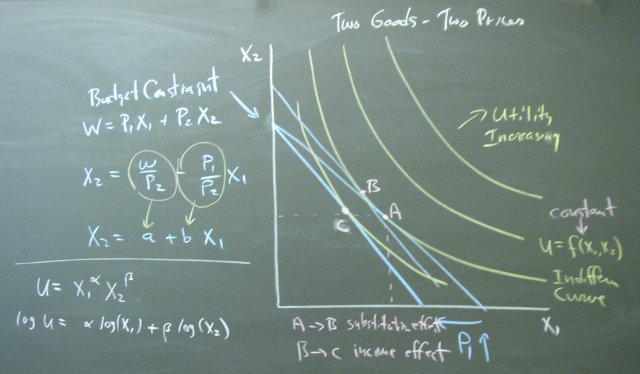 Two Goods - Two Prices
X₂
Budget Constraint
W = P₁X₁ + P₂X₂
X₂ = w/P₂ - P₁/P₂ X₁
X₂ = a + b X₁
U = X₁^α X₂^β
log U = α log(X₁) + β log(X₂)
Utility
Increasing
B
A
C
constant
U = f(X₁, X₂)
Indiffern
Curve
X₁
A → B substitution effect
B → C income effect
P₁ ↑